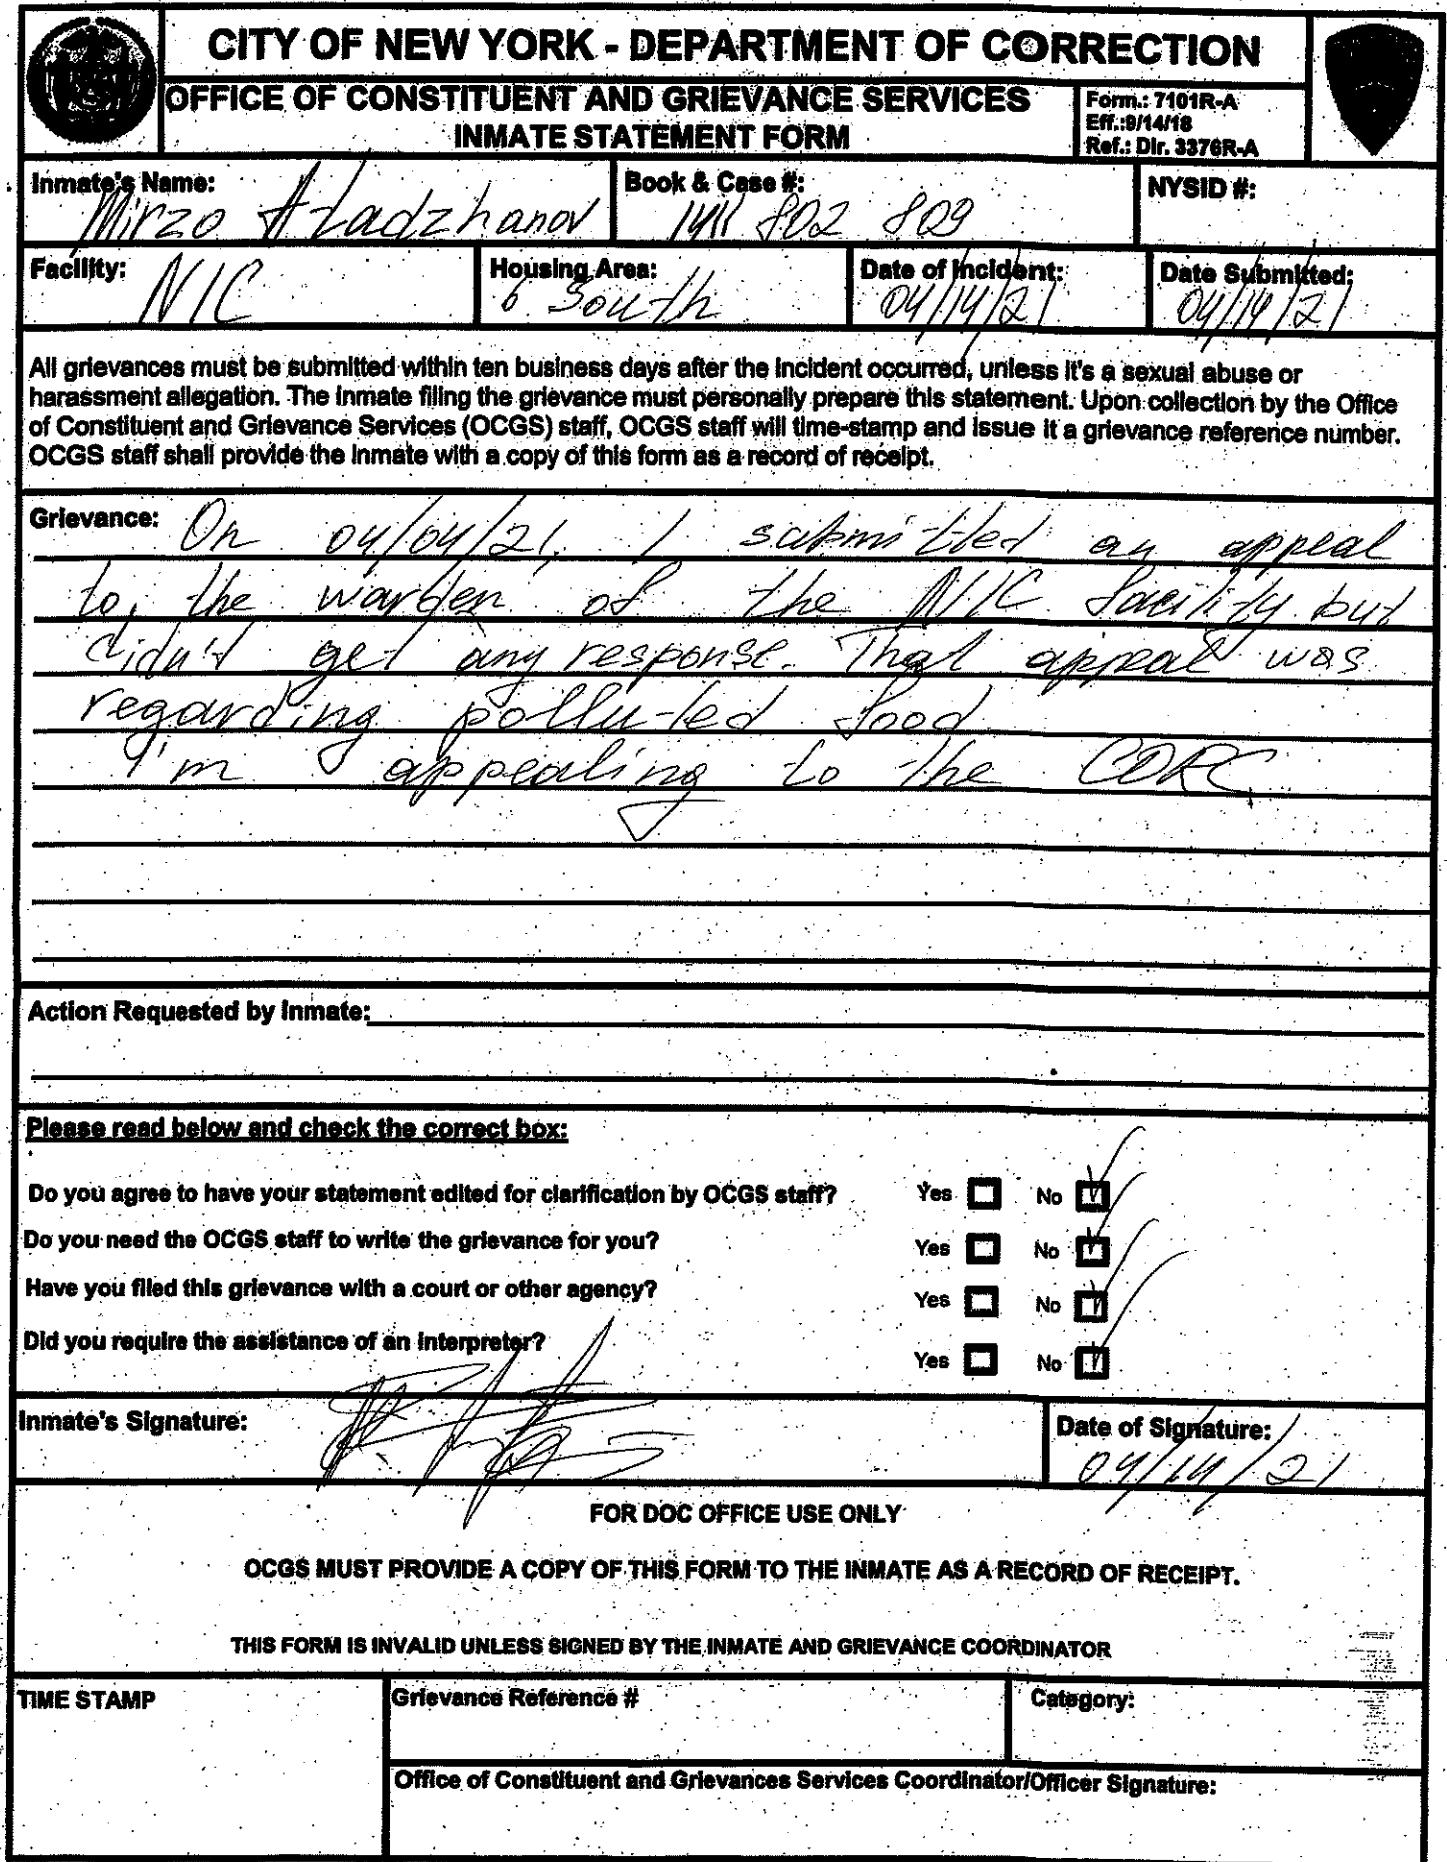 CITY OF NEW YORK - DEPARTMENT OF CORRECTION
OFFICE OF CONSTITUENT AND GRIEVANCE SERVICES
INMATE STATEMENT FORM
Form.: 7101R-A
Eff.:9/14/18
Ref.: Dir. 3376R-A
Inmate's Name: Mirzo Atadzhanov
Book & Case #: 1411 802 809
NYSID #:
Facility: NIC
Housing Area: 6 South
Date of Incident: 04/14/21
Date Submitted: 04/14/21
All grievances must be submitted within ten business days after the incident occurred, unless it's a sexual abuse or
harassment allegation. The inmate filing the grievance must personally prepare this statement. Upon collection by the Office
of Constituent and Grievance Services (OCGS) staff, OCGS staff will time-stamp and issue it a grievance reference number.
OCGS staff shall provide the inmate with a copy of this form as a record of receipt.
Grievance: On 04/04/21, I submitted an appeal
to, the warden of the NIC facility but
didn't get any response. That appeal was
regarding polluted food
I'm appealing to the CORC
Action Requested by Inmate:
Please read below and check the correct box:
Do you agree to have your statement edited for clarification by OCGS staff? Yes No
Do you need the OCGS staff to write the grievance for you? Yes No
Have you filed this grievance with a court or other agency? Yes No
Did you require the assistance of an interpreter? Yes No
Inmate's Signature:
Date of Signature: 04/14/21
FOR DOC OFFICE USE ONLY
OCGS MUST PROVIDE A COPY OF THIS FORM TO THE INMATE AS A RECORD OF RECEIPT.
THIS FORM IS INVALID UNLESS SIGNED BY THE INMATE AND GRIEVANCE COORDINATOR
TIME STAMP
Grievance Reference #
Category:
Office of Constituent and Grievances Services Coordinator/Officer Signature: